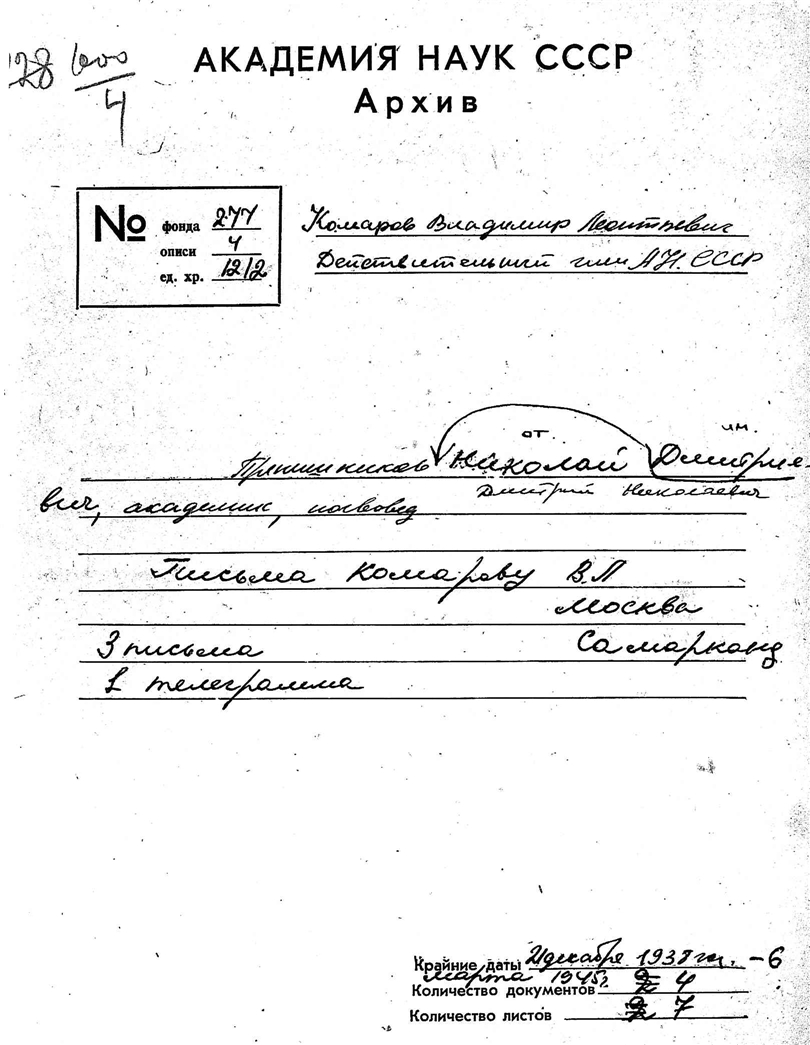 128 600
4
АКАДЕМИЯ НАУК СССР
Архив
№ фонда 277
описи 4
ед. хр. 1212
Комаров Владимир Леонтьевич
Действительный член АН. СССР
от. им.
Прянишников Николай Дмитрие-
Дмитрий Николаевич
вич, академик, почвовед
Письма Комарову В.Л
Москва
3 письма Самарканд
1 телеграмма
Крайние даты 21 декабря 1938 гг. – 6
марта 1945г.
Количество документов 4
Количество листов 7